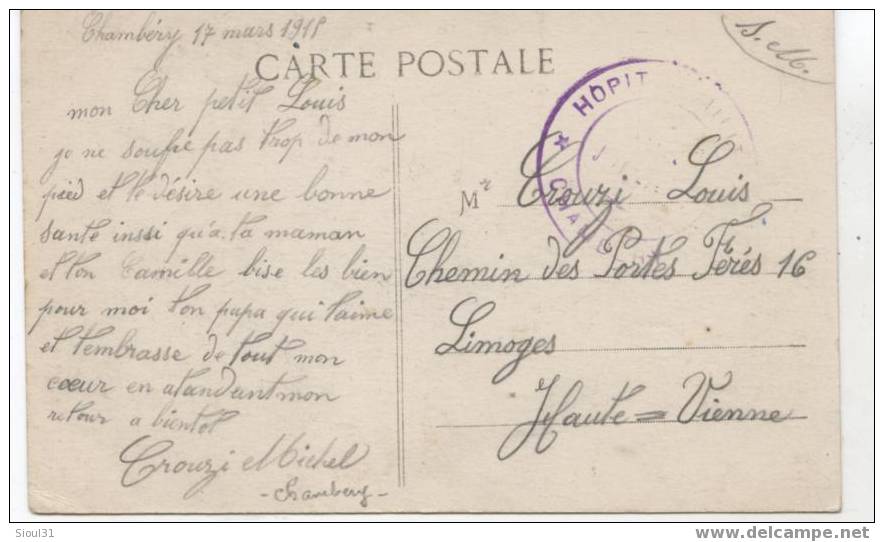 Chambéry 17 mars 1918
S.M.
CARTE POSTALE
HOPIT
mon Cher petit Louis
je ne soufre pas trop de mon
pied et te désire une bonne
santé inssi qu'a ta maman
et ton Camille bise les bien
pour moi ton papa qui t'aime
et t'embrasse de tout mon
cœur en atandant mon
retour a bientot
Crouzi Michel
- Chambery -
Mr Crouzi Louis
Chemin des Portes Ferés 16
Limoges
Haute = Vienne
Sioul31
www.delcampe.net